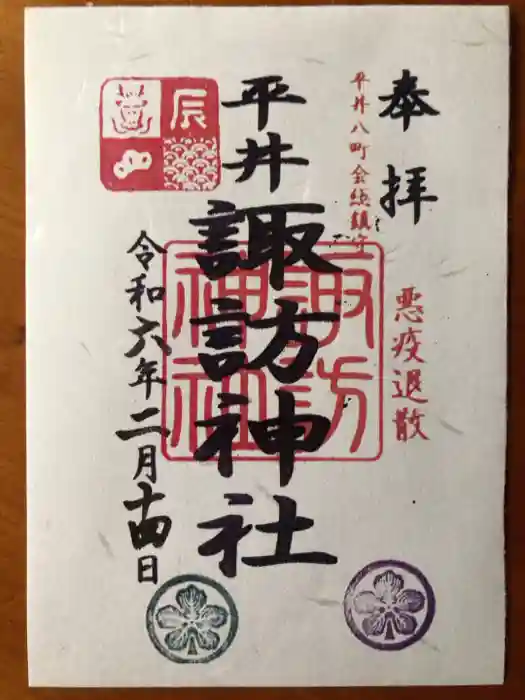 奉拝
平井八町会総鎮守
悪疫退散
平井
諏訪神社
諏訪神社
令和六年二月十四日
辰